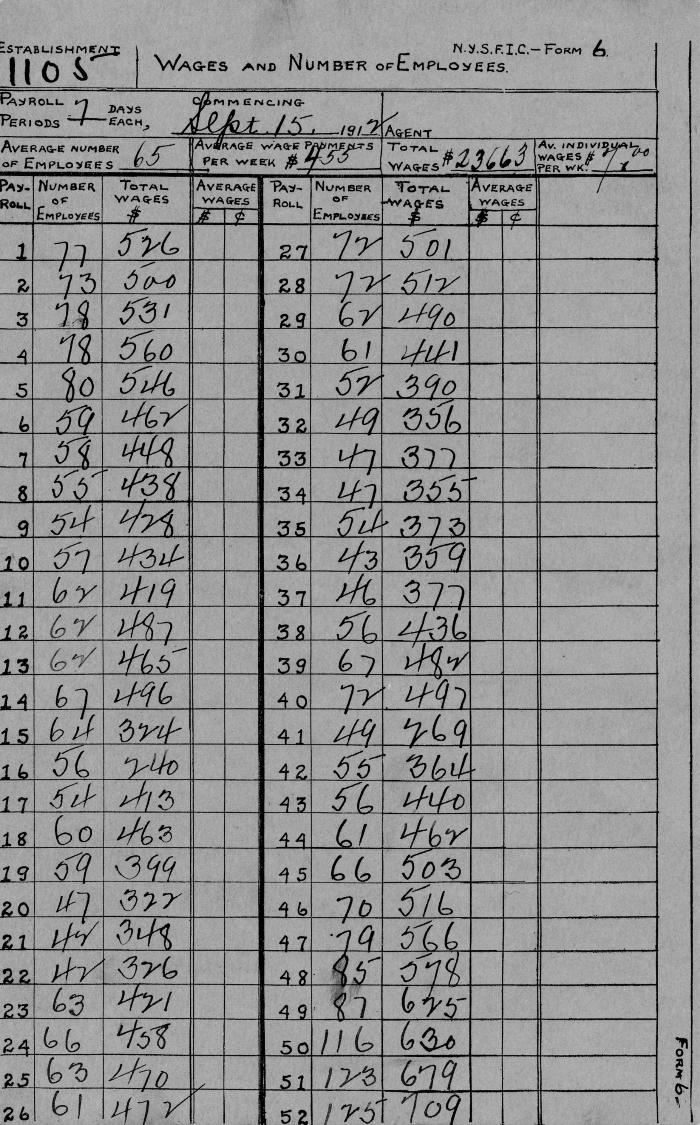 ESTABLISHMENT N.Y.S.F.I.C.—FORM 6.
1105 WAGES AND NUMBER OF EMPLOYEES.
PAYROLL 7 DAYS COMMENCING
PERIODS EACH, Sept. 15, 1912 AGENT
AVERAGE NUMBER AVERAGE WAGE PAYMENTS TOTAL AV. INDIVIDUAL
OF EMPLOYEES 65 PER WEEK $ 455 WAGES $23663 WAGES $
PER WK.
PAY- NUMBER TOTAL AVERAGE PAY- NUMBER TOTAL AVERAGE
ROLL OF WAGES WAGES ROLL OF WAGES WAGES
EMPLOYEES $ $ ¢ EMPLOYEES $ $ ¢
1 77 526 27 72 501
2 73 500 28 72 512
3 78 531 29 62 490
4 78 560 30 61 441
5 80 546 31 52 390
6 59 462 32 49 356
7 58 448 33 47 377
8 55 438 34 47 355
9 54 428 35 54 373
10 57 434 36 43 359
11 62 419 37 46 377
12 62 487 38 56 436
13 62 465 39 67 482
14 67 496 40 72 497
15 64 324 41 49 269
16 56 240 42 55 364
17 54 413 43 56 440
18 60 463 44 61 462
19 59 399 45 66 503
20 47 322 46 70 516
21 42 348 47 79 566
22 42 326 48 85 578
23 63 421 49 87 625
24 66 458 50 116 630
25 63 470 51 123 679
26 61 472 52 125 709
FORM 6—